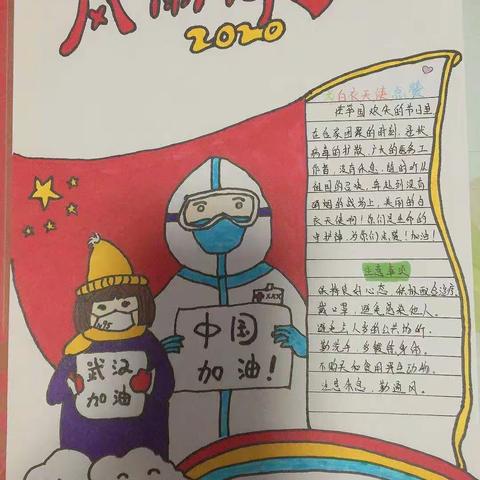 2020
为白衣天使点赞
在举国欢庆的节日里
在各家团聚的时刻,
病毒的扩散,广大的医务工
作者,没有休息,随时听从
祖国的召唤,奔赴到没有
硝烟的战场上,美丽的白
衣天使啊!你们是生命的
守护神,为你们点赞!加油!
注意事项
保持良好心态,积极配合治疗,
戴口罩,避免感染他人。
避免去人多的公共场所。
勤洗手,多锻炼身体。
不购买和食用野生动物
注意休息,勤通风。
XXX
N95
中国
加油!
武汉
加油